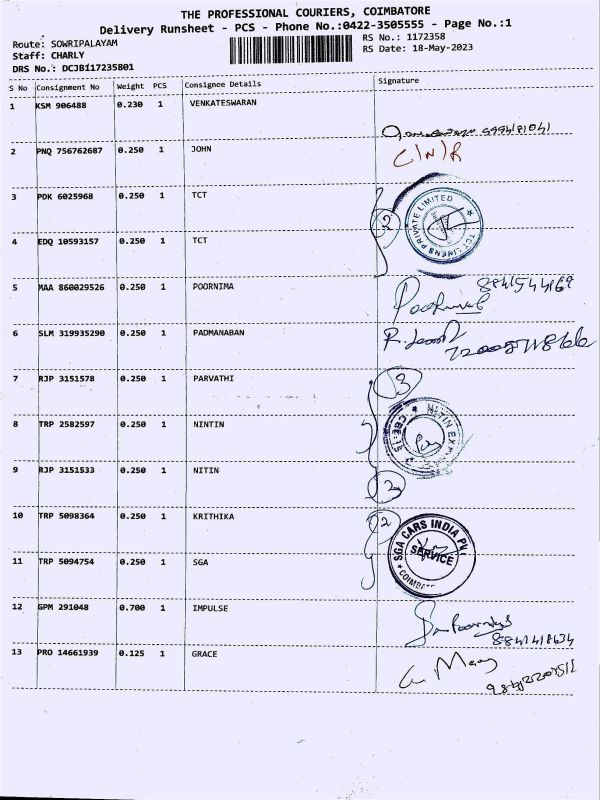 THE PROFESSIONAL COURIERS, COIMBATORE
Delivery Runsheet - PCS - Phone No.:0422-3505555 - Page No.:1
Route: SOWRIPALAYAM
Staff: CHARLY
DRS No.: DCJB117235801
RS No.: 1172358
RS Date: 18-May-2023
S No Consignment No Weight PCS Consignee Details Signature
1 KSM 906488 0.230 1 VENKATESWARAN
2 PNQ 756762687 0.250 1 JOHN C/N/R
3 PDK 6025968 0.250 1 TCT
2
TCT LINENS PRIVATE LIMITED
4 EDQ 10593157 0.250 1 TCT
5 MAA 860029526 0.250 1 POORNIMA
6 SLM 319935290 0.250 1 PADMANABAN
7 RJP 3151578 0.250 1 PARVATHI
3
8 TRP 2582597 0.250 1 NINTIN
NITIN
9 RJP 3151533 0.250 1 NITIN
2
10 TRP 5098364 0.250 1 KRITHIKA
2
SGA CARS INDIA
SERVICE
11 TRP 5094754 0.250 1 SGA
12 GPM 291048 0.700 1 IMPULSE
13 PRO 14661939 0.125 1 GRACE